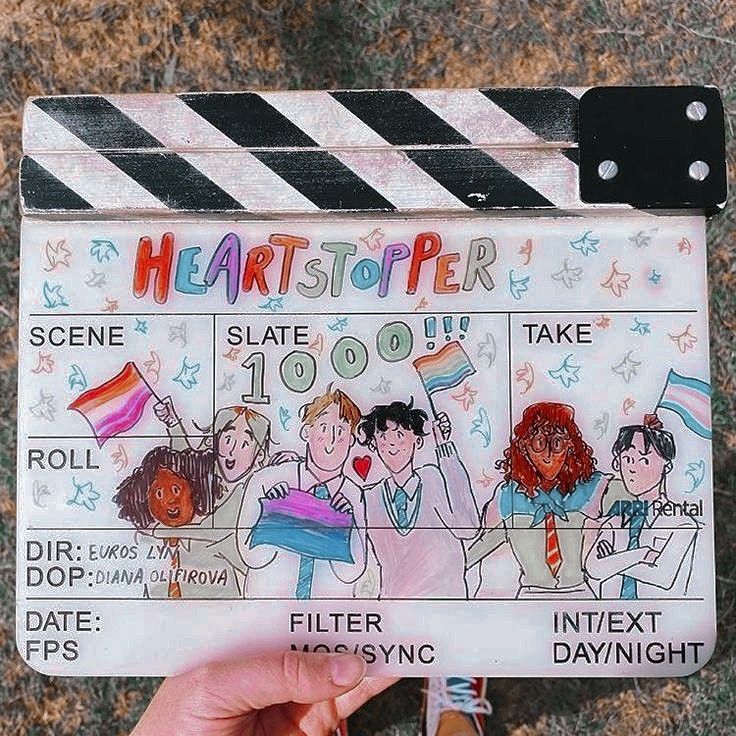 HEARTSTOPPER
SCENE
SLATE
1000!!!
TAKE
ROLL
ARRI Rental
DIR: EUROS LYN
DOP: DIANA OLIFIROVA
DATE:
FILTER
INT/EXT
FPS
MOS/SYNC
DAY/NIGHT